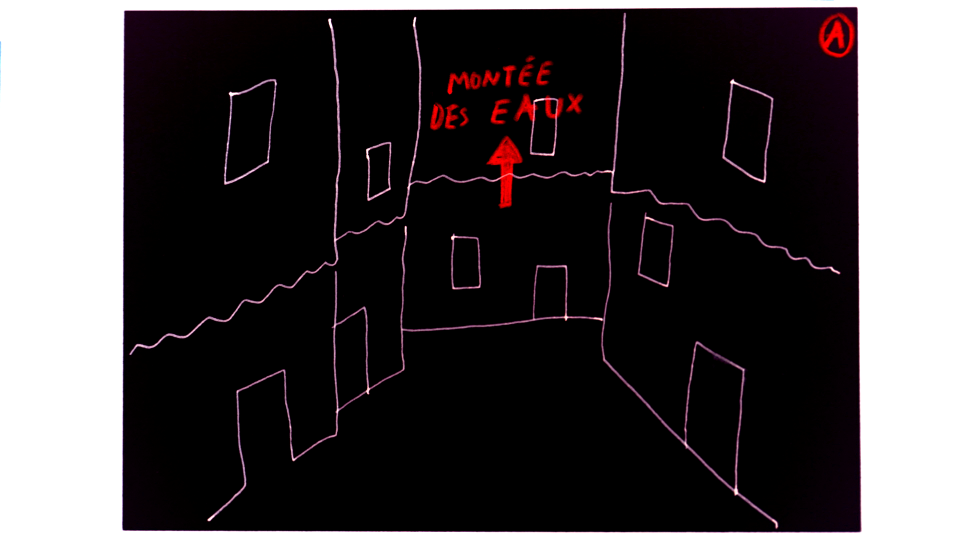 A
MONTÉE
DES EAUX